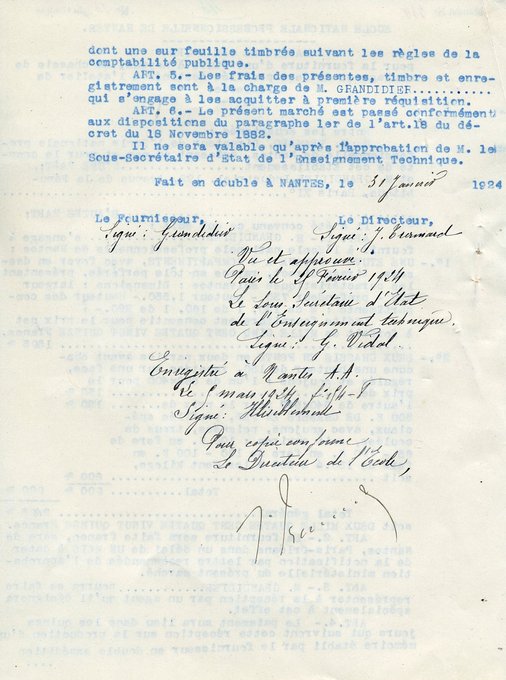 dont une sur feuille timbrée suivant les règles de la
comptabilité publique.
ART. 5.- Les frais des présentes, timbre et enre-
gistrement sont à la charge de M. GRANDIDIER...........
qui s'engage à les acquitter à première réquisition.
ART. 6.- Le présent marché est passé conformément
aux dispositions du paragraphe 1er de l'art.18 du dé-
cret du 18 Novembre 1882.
Il ne sera valable qu'après l'approbation de M. le
Sous-Secrétaire d'Etat de l'Enseignement Technique.
Fait en double à NANTES, le 31 Janvier 1924
Le Fournisseur, Le Directeur,
Signé: Grandidier Signé: J.
Vu et approuvé:
Paris le Février 1924
Le Sous Secrétaire d'Etat
de l'Enseignement technique.
Signé: G. Vidal.
Enregistré à Nantes A.A.
Le 5 mars 1924
Signé: Illisiblement
Pour copie conforme
Le Directeur de l'Ecole,